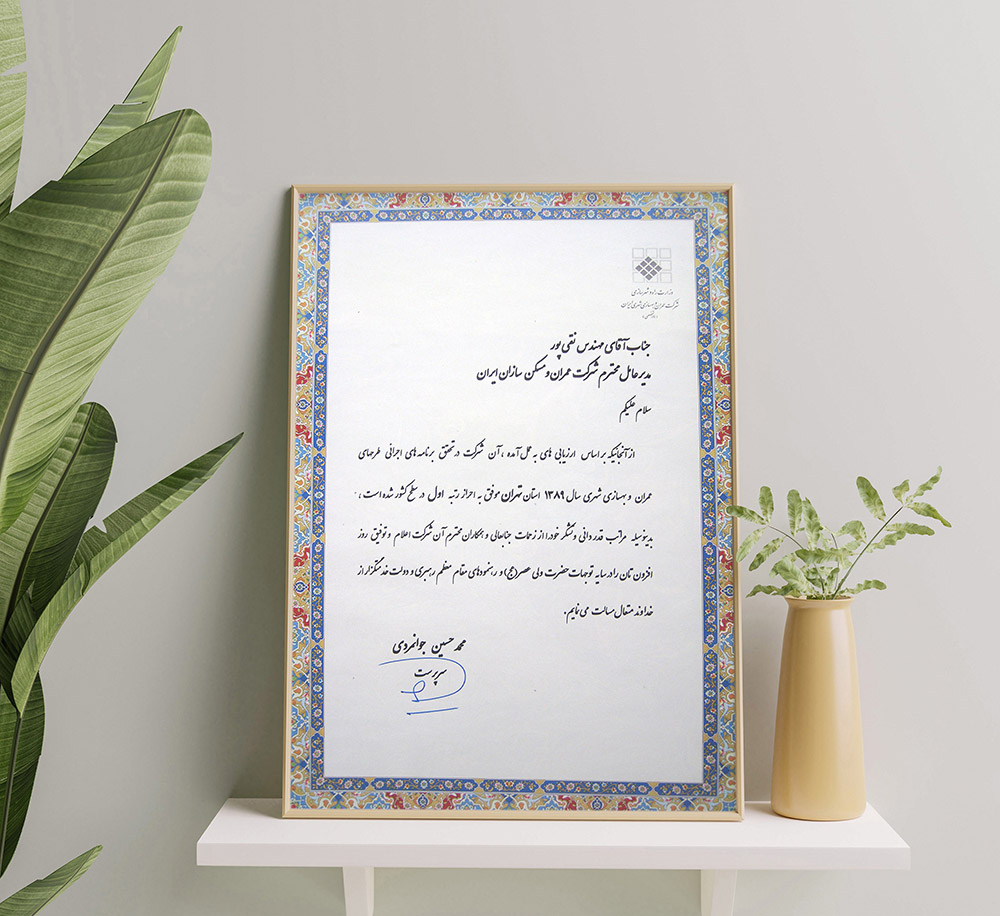 وزارت راه و شهرسازی
شرکت عمران و بهسازی شهری ایران
جناب آقای مهندس نقی پور
مدیرعامل محترم شرکت عمران و مسکن سازان ایران
سلام علیکم
از آنجائیکه براساس ارزیابی های به عمل آمده ، آن شرکت در تحقق برنامه های اجرائی طرحهای
عمران و بهسازی شهری سال ۱۳۸۹ استان تهران موفق به احراز رتبه اول در سطح کشور شده است ،
بدینوسیله مراتب قدردانی و تشکر خود را از زحمات جنابعالی و همکاران محترم آن شرکت اعلام و توفیق روز
افزون تان را در سایه توجهات حضرت ولی عصر(عج) و رهنمودهای مقام معظم رهبری و دولت خدمتگزار از
خداوند متعال مسالت می نمایم.
محمد حسین جوانمردی
سرپرست